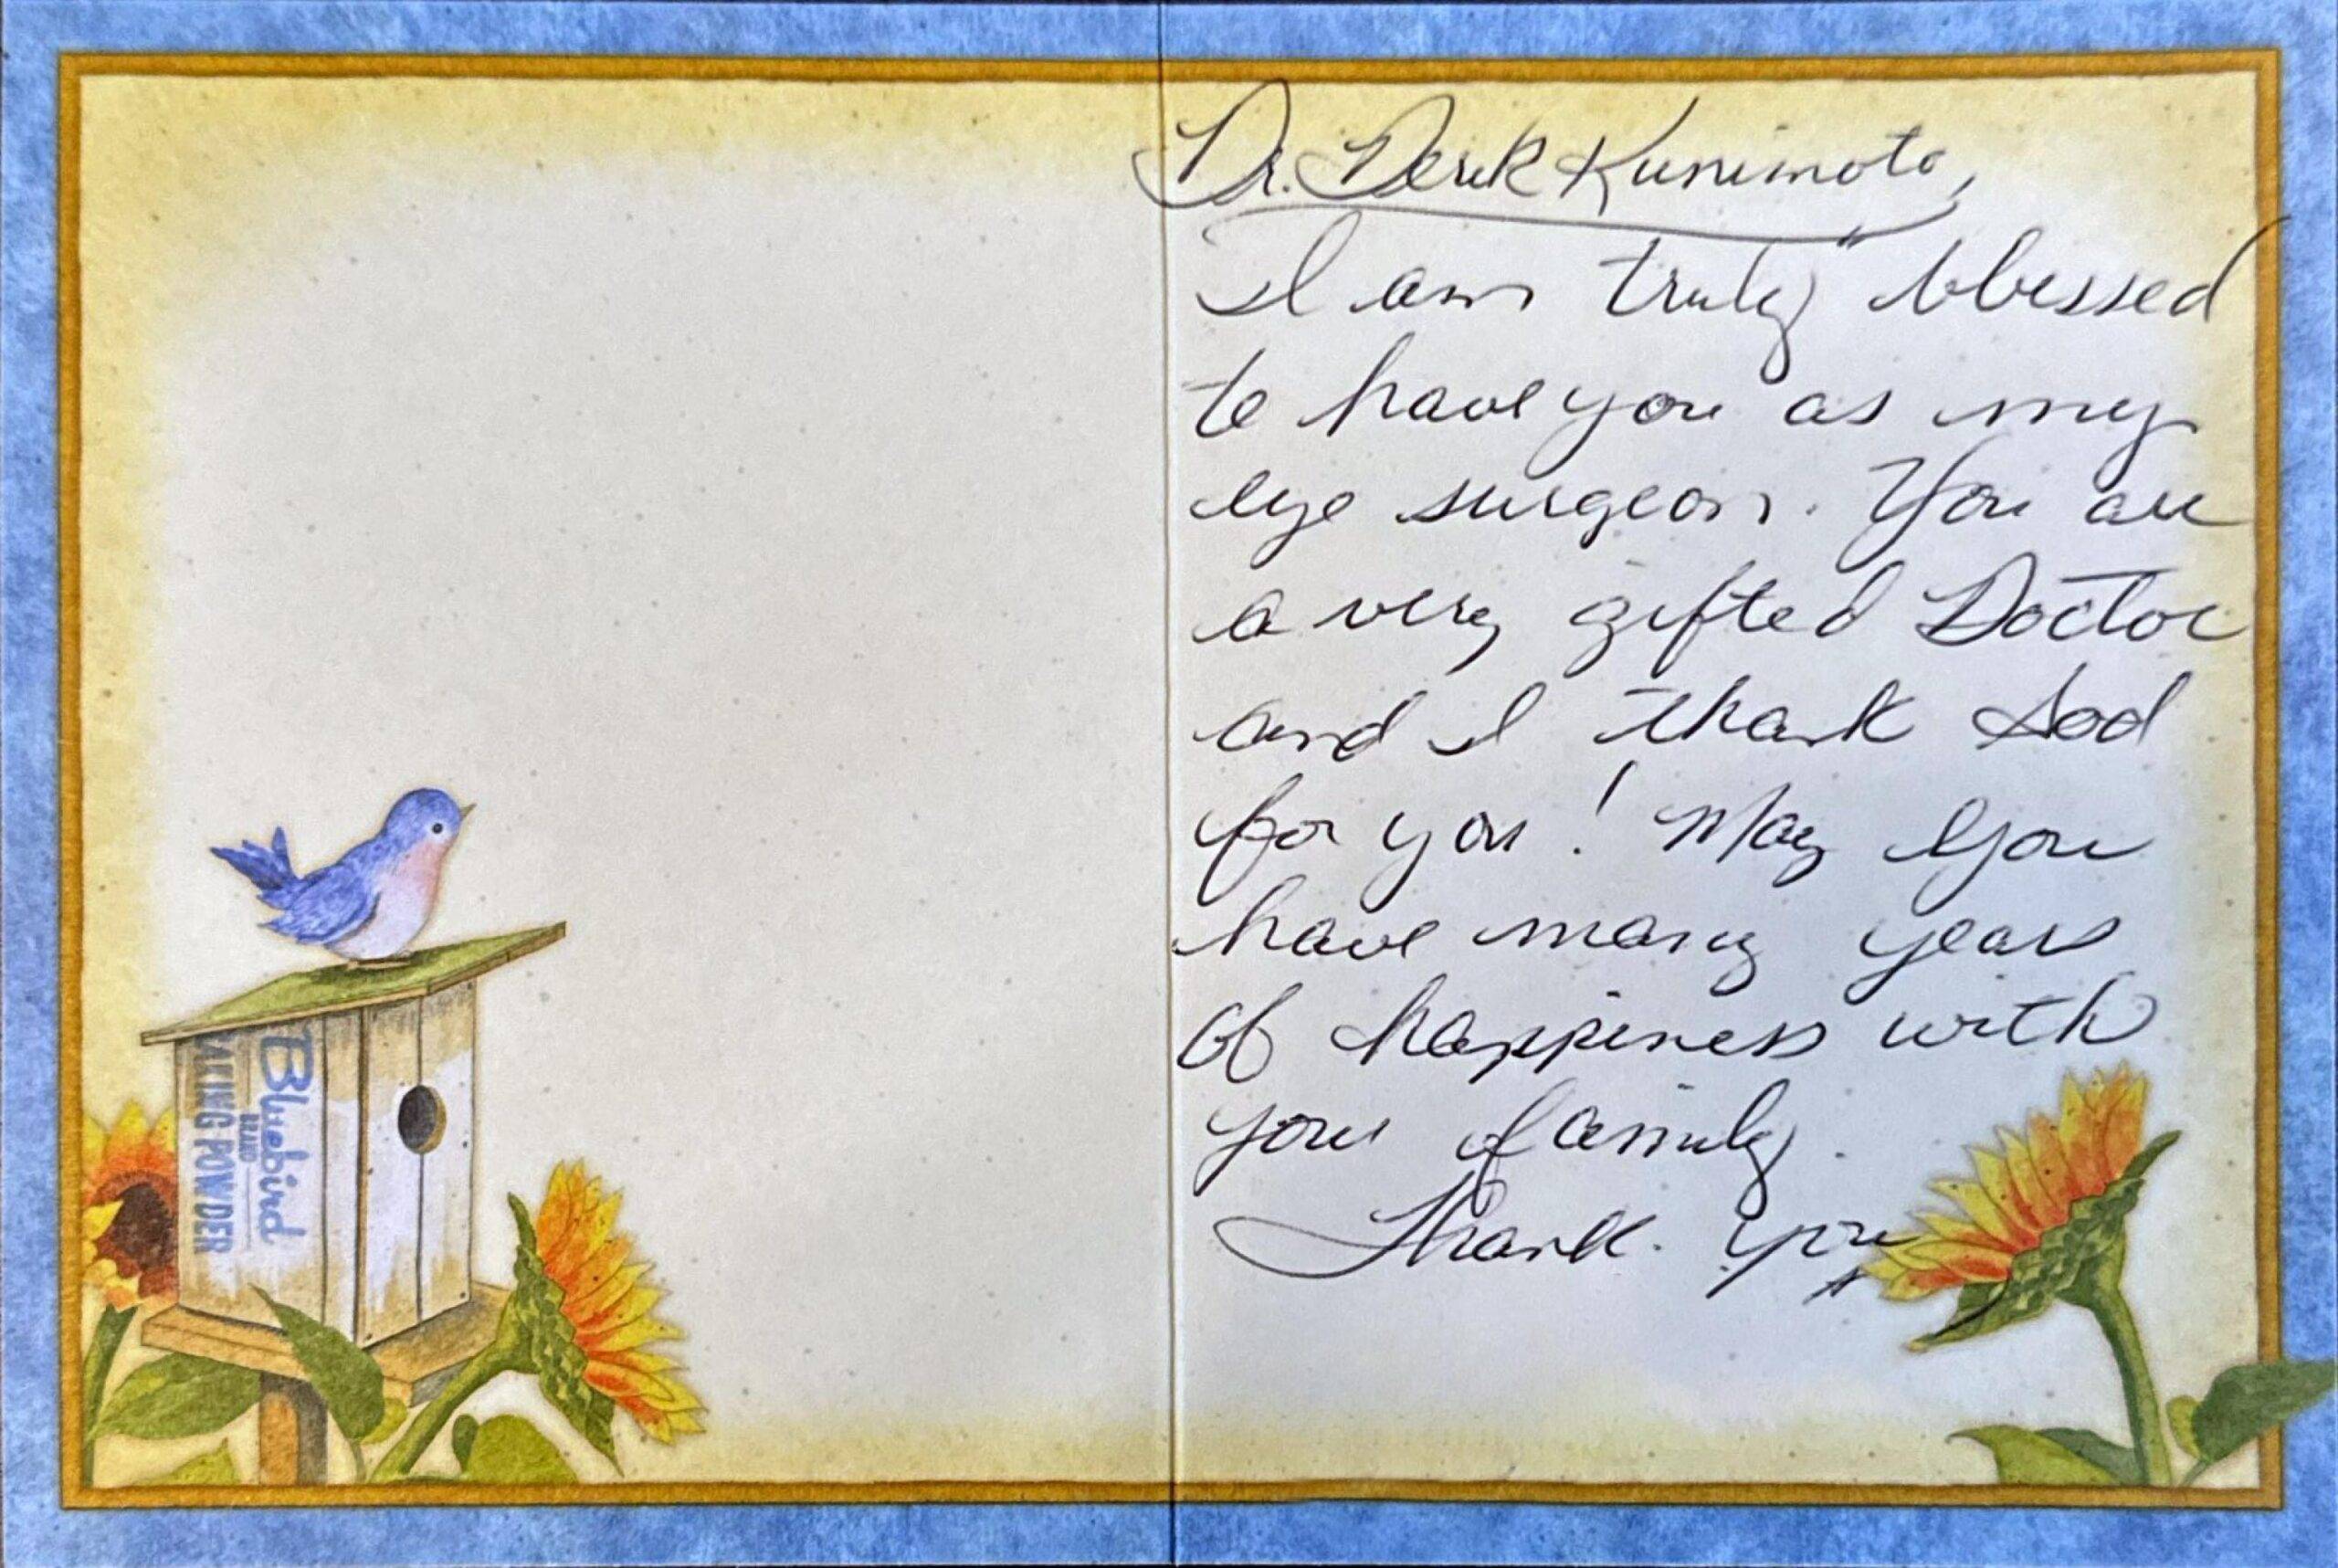 Bluebird
BRAND
BAKING POWDER
Dr. Derek Kunimoto,
I am truly blessed
to have you as my
eye surgeon. You are
a very gifted Doctor
and I thank God
for you! May you
have many years
of happiness with
your family.
Thank you